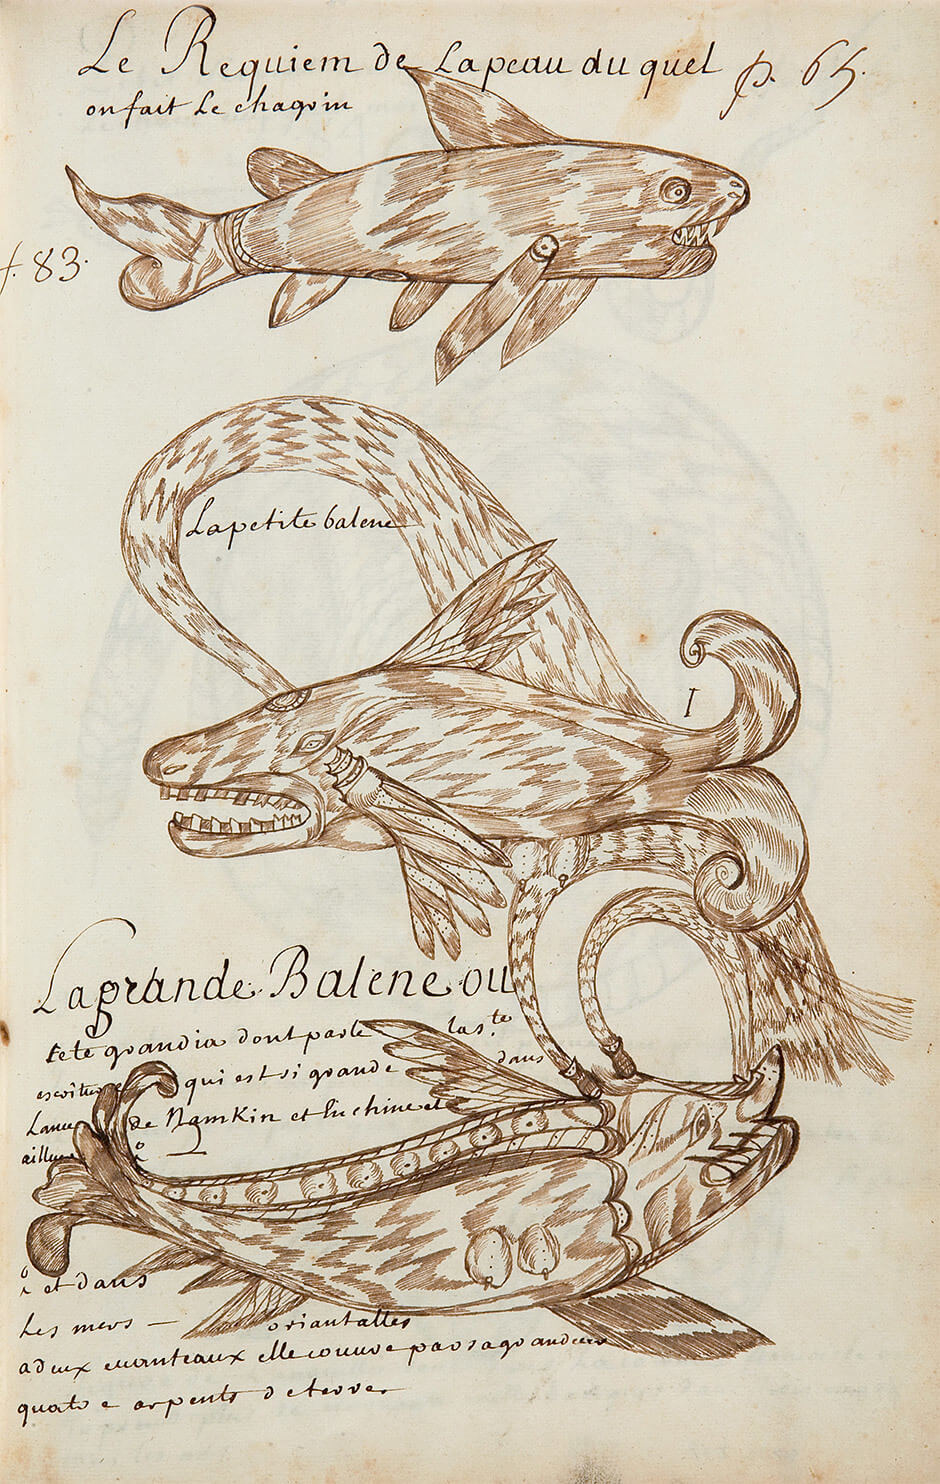 Le Requiem de La peau du quel
on fait Le chagrin
p. 65.
f. 83.
La petite balene
I
La grande Balene ou
tete grandia dont parle las.te
escriture qui est si grande dans
La de Namkin et
et dans
Les mers — oriantalles
a deux euanteaux elle couure par sa grandeur
quatre arpents de terre.